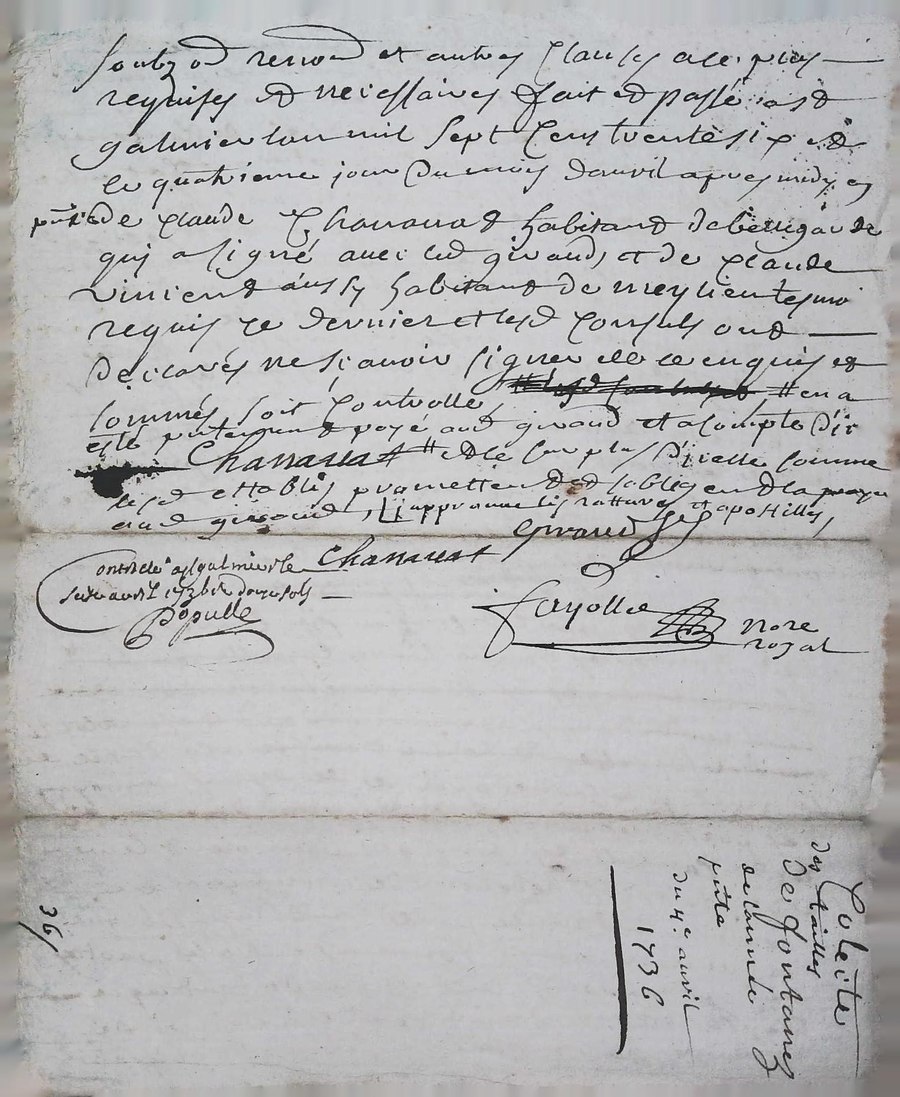 soubz od renon et autres clauses a ce plus
requises et necessaires fait et passé a st
galmier lan mil sept cens trente six et
le quatrieme jour du mois davril apres midy en
pnce de claude Chanauat habitant de bellegarde
qui a signé avec led giraud, et de claude
vincent aussy habitant de meylieu tesmoins
requis ce dernier et lesd consuls ont
declarés ne scavoir signer de ce enquis et
sommés, soit controllé en a
esté presentement payé aud giraud et acompte
Chanauat # et le surplus dicelle somme
lesd establis promettent et sobligent la payer
aud giraud, approuvé les rattures et apostilles,
Giraud
Chanauat
Controllé a st galmier le
six avril 1736 recu douze sols
Populle
fayolle nore
royal
Coleite
des tailles
de fontanes
de lannée
pnte
du 4e avril
1736
36/